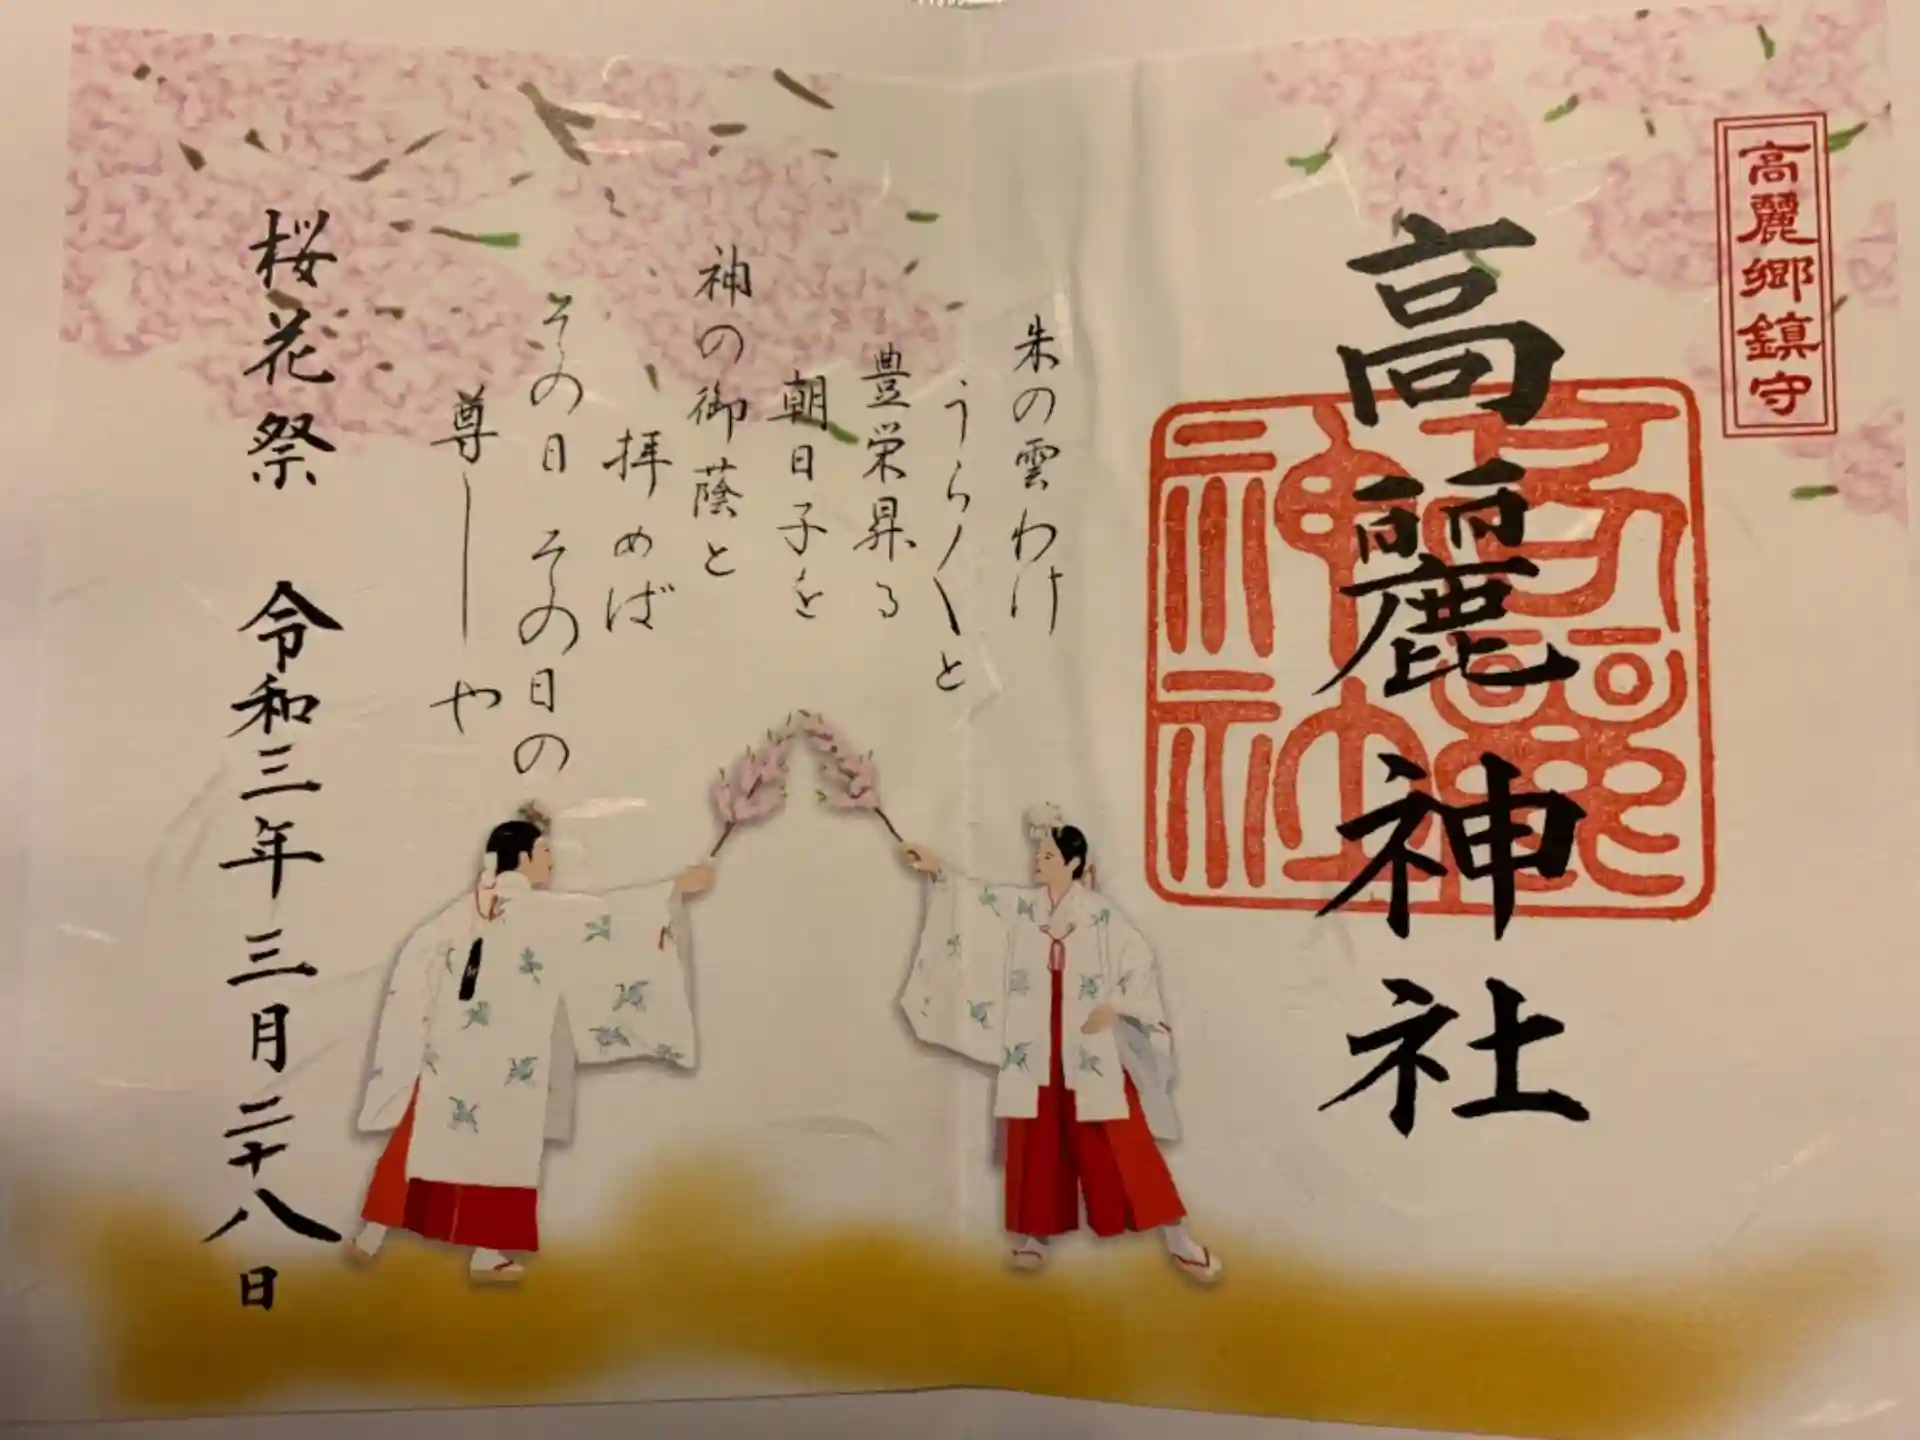 高麗郷鎮守
高麗神社
高麗神社
朱の雲わけ
うら〱と
豊栄昇る
朝日子を
神の御蔭と
拝めば
その日その日の
尊しや
桜花祭 令和三年三月二十八日